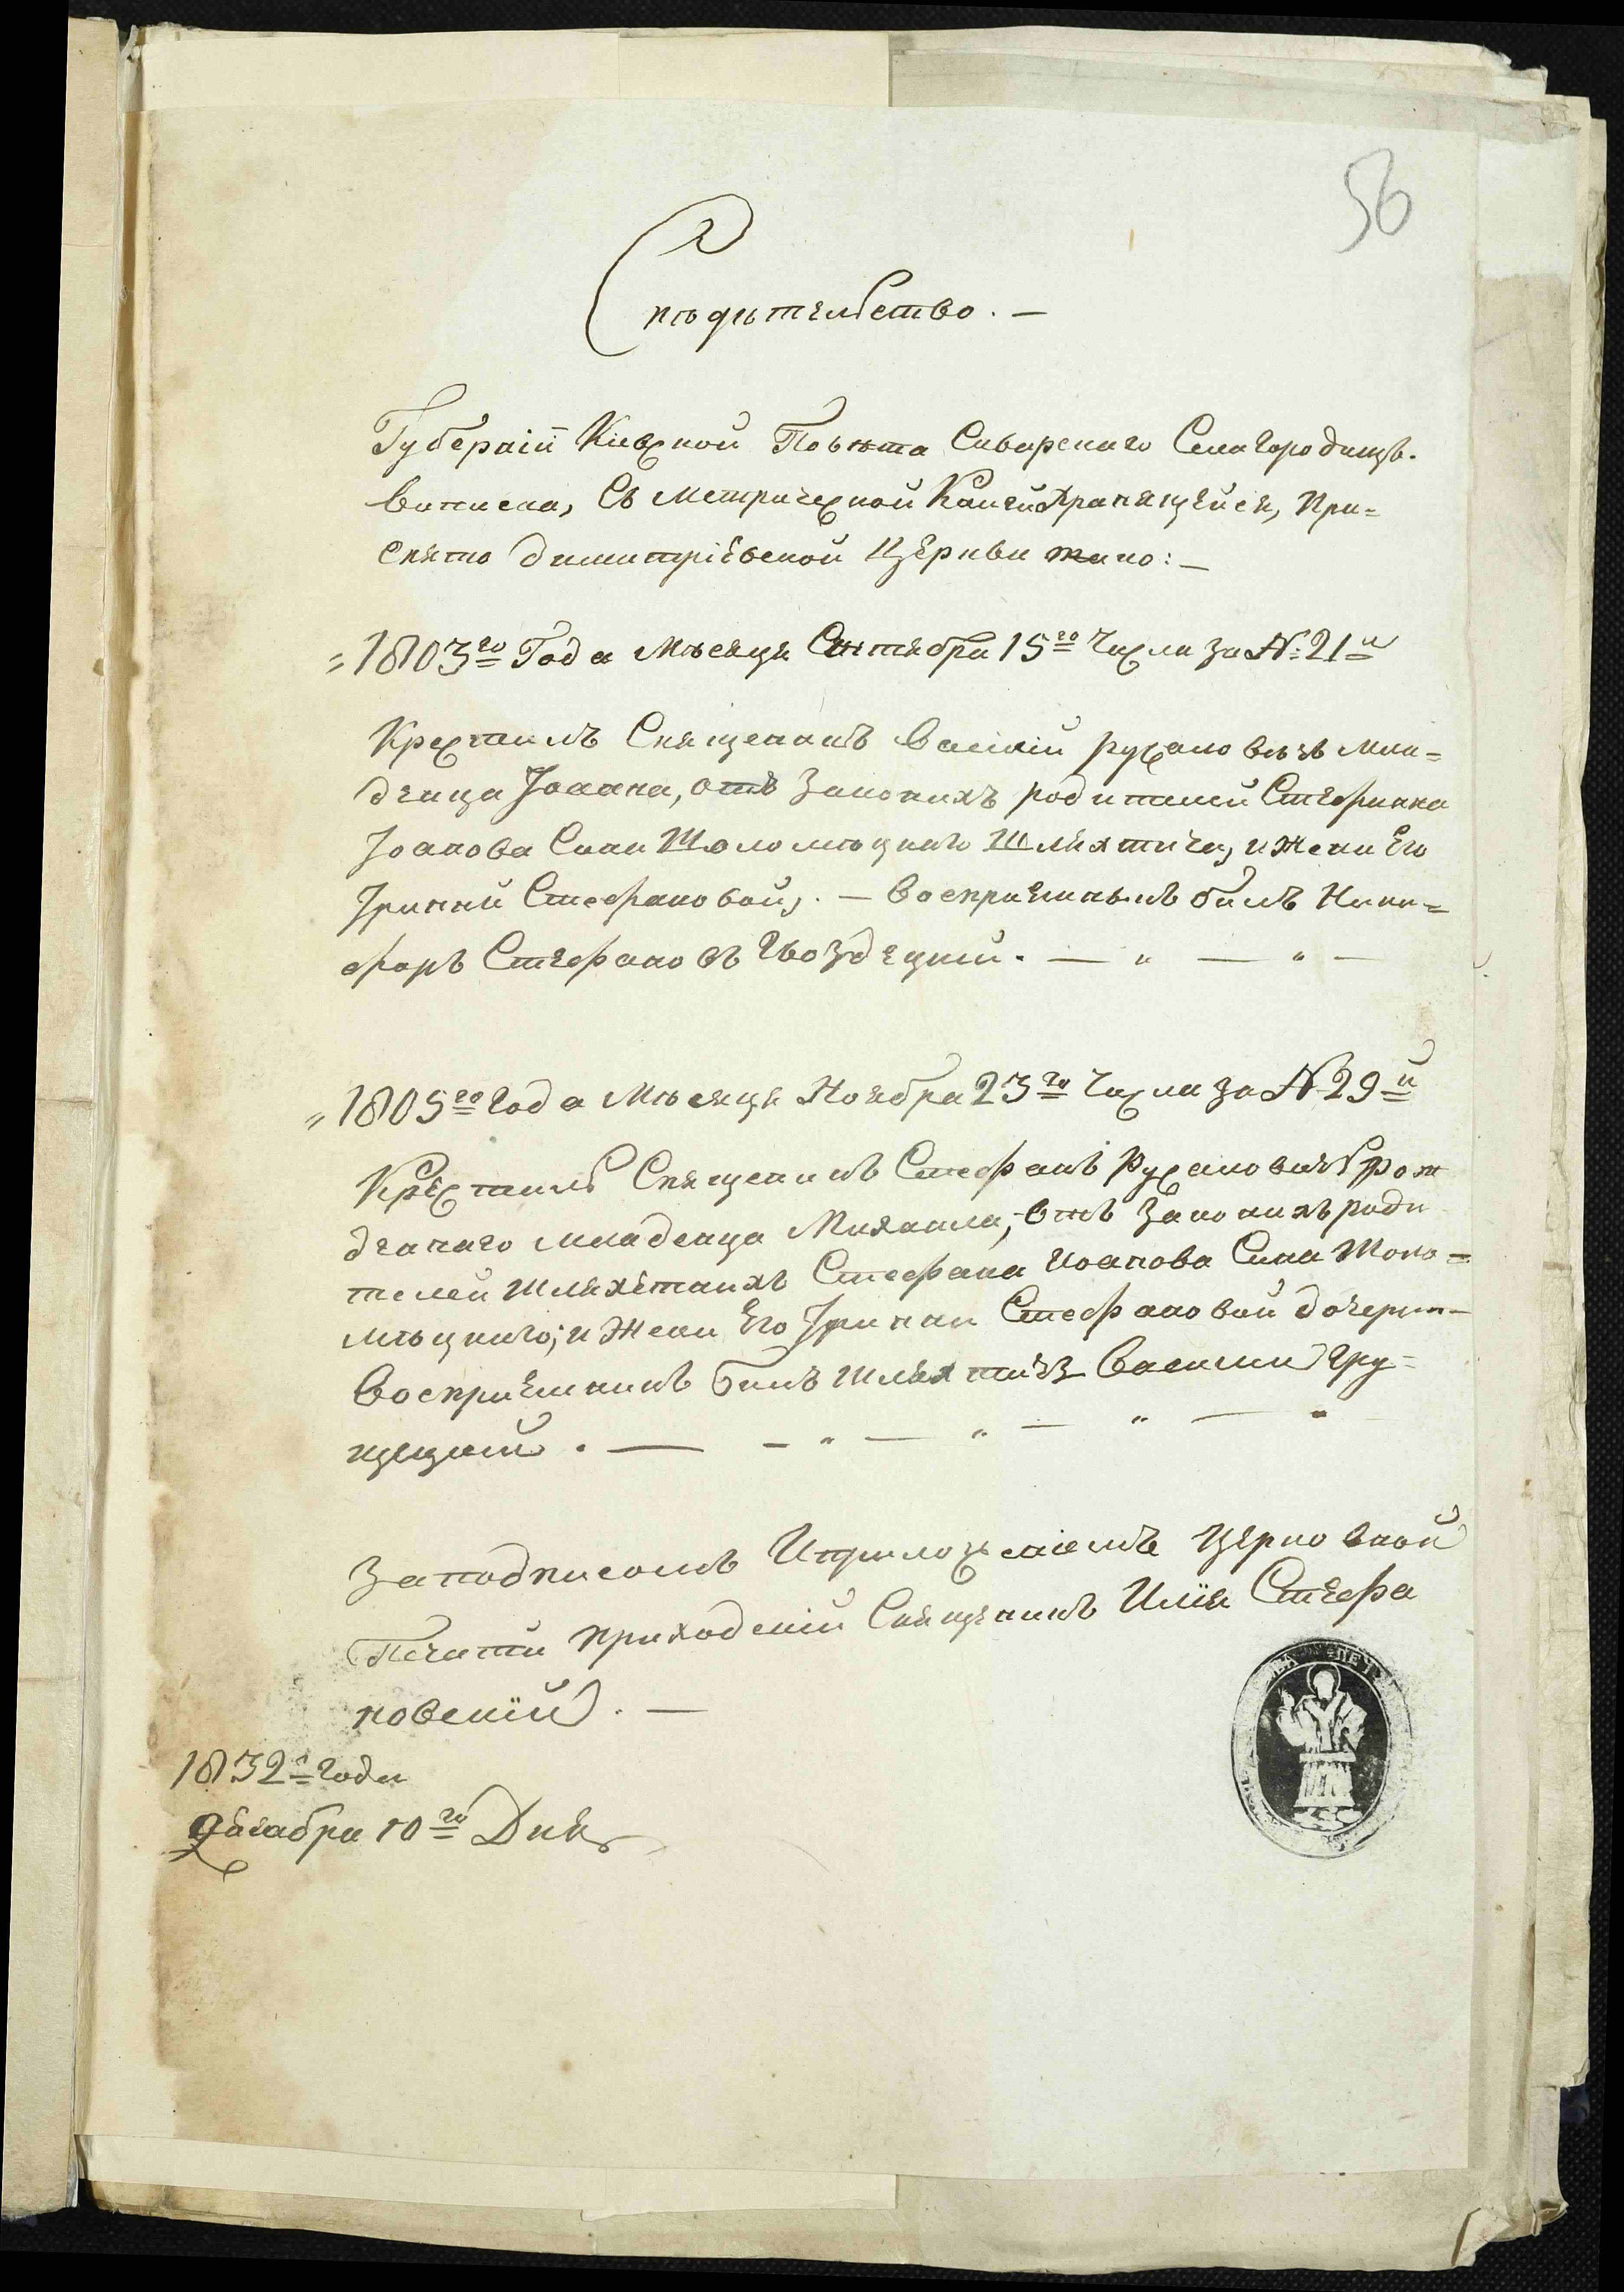 56
Свѣдѣтелство. —
Губерніи Кіевской Повѣта Сквирскаго Села Городищъ.
Виписка, Съ Метрической Книги Хранящейся, При=
Свято Димитріевской Церкви тако: —
1803го Года Мѣсяца Сентября 15го Числа За №: 21й
Крестилъ Священикъ Василій Русановичъ Мла=
денца Іоанна, отъ Законихъ родителей Стефана
Іоанова Сина Шоломѣцкаго Шляхтича, и Жени Его
Іринни Стефановой. — Воспріемникъ билъ Ники=
форъ Стефановъ Гвоздецкий. — „ — „ —
1805го Года Мѣсяца Ноября 23го Числа За № 29й
Крестилъ Священикъ Стефанъ Русановичъ рож
денаго Младенца Михаила, отъ Законихъ роди
телей Шляхетнихъ Стефана Иоанова Сина Шоло=
мѣцкаго, и Жени Его Іринни Стефановой дочери —
Воспріемникъ билъ Шляхтичъ Василий Гру=
щецкий. — — „ — „ — „ — „
За подписомъ И приложеніемъ Церковной
Печати приходскій Священикъ Илія Стефа
новскій. —
1832го Года
Декабря 10го Дня